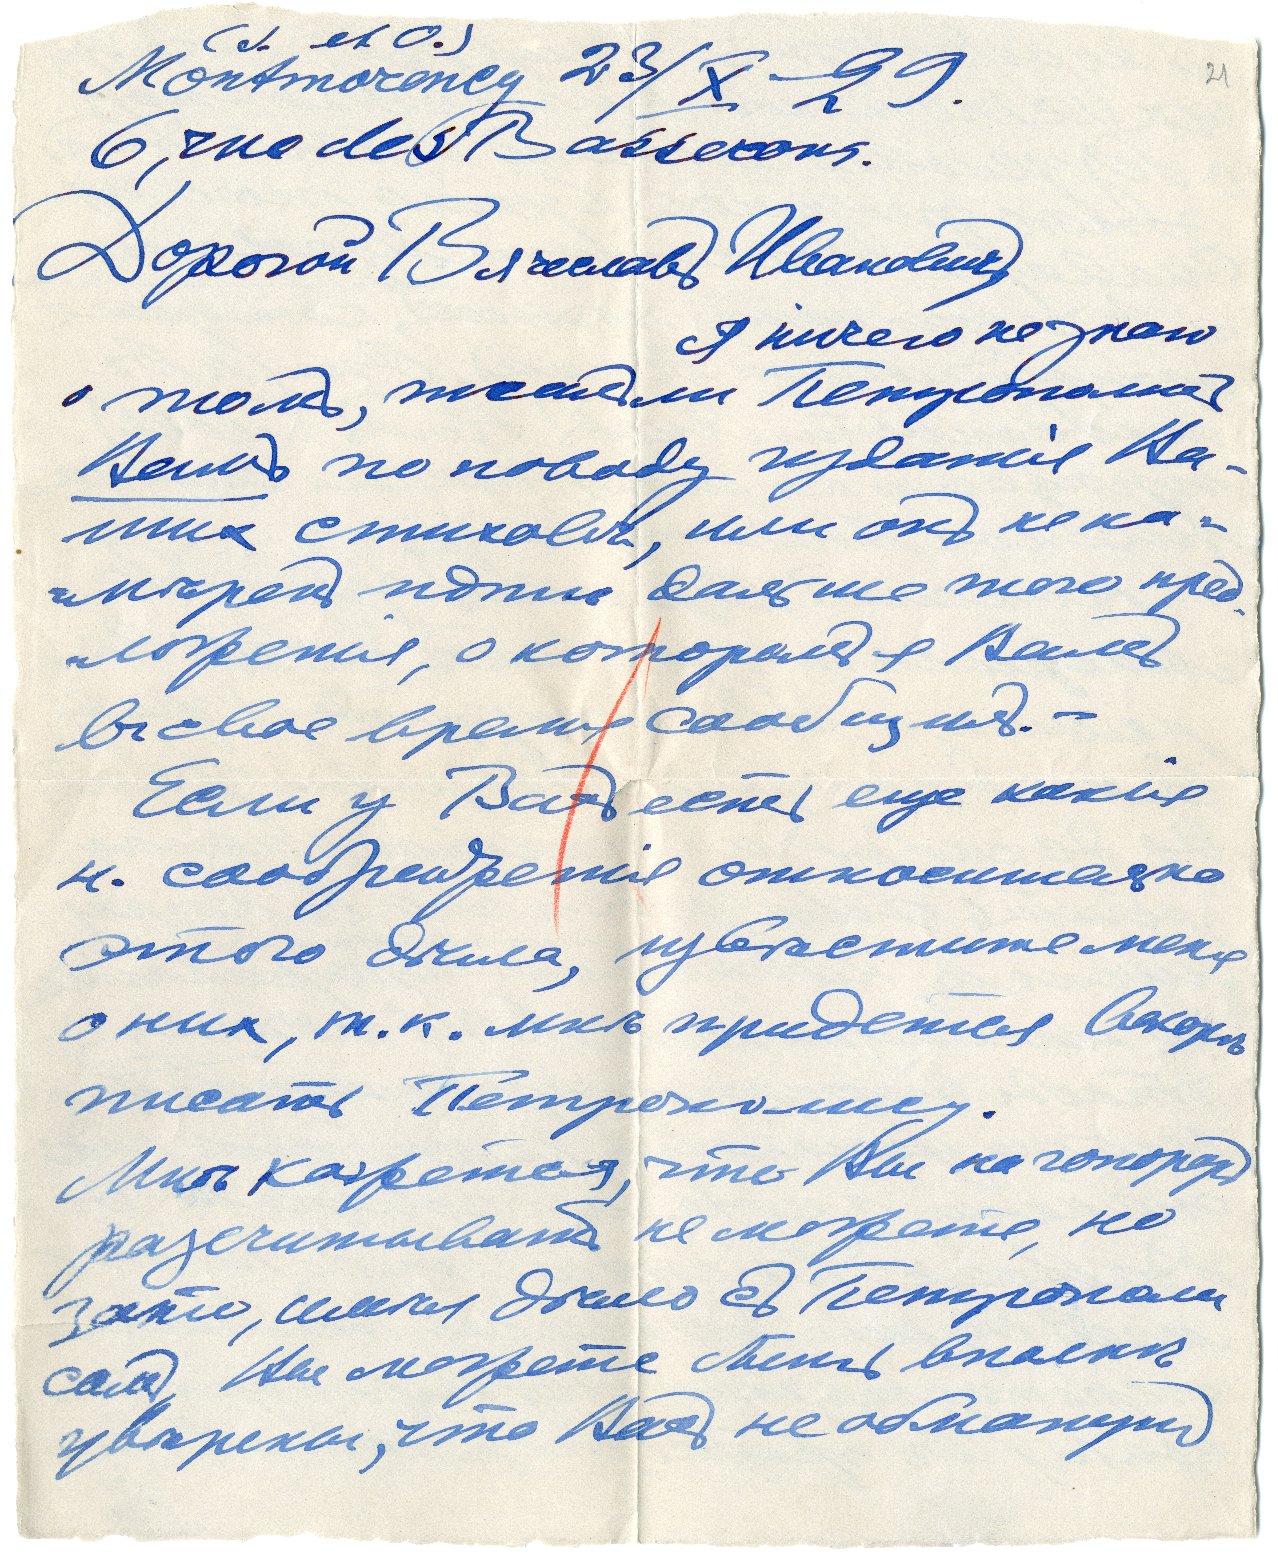 (S. et O.)
Montmorency 23/X–29.
6, rue des Basserons.
21
Дорогой Вячеславъ Ивановичъ
я ничего не знаю
о томъ, писалъ ли Петрополисъ
Вамъ по поводу изданія Ва-
шихъ стиховъ, или онъ не на-
мѣренъ идти дальше того пред-
ложенія, о которомъ я Вамъ
въ свое время сообщилъ. –
Если у Васъ есть еще какія
н. соображенія относительно
этого дѣла, извѣстите меня
о них, т. к. мнѣ придется вскорѣ
писать Петрополису.
Мнѣ кажется, что Вы на гонораръ
разсчитывать не можете, но
зато, имѣя дѣло съ Петрополи
сомъ, Вы можете быть вполнѣ
увѣрены, что Васъ не обманутъ